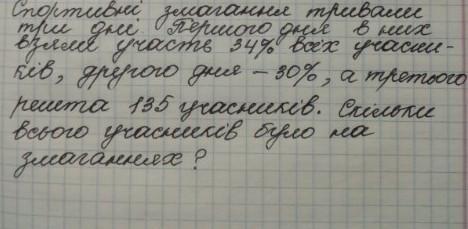 Спортивні змагання тривали
три дні. Першого дня в них
взяли участь 34% всіх учасни-
ків, другого дня - 30%, а третього
решта 135 учасників. Скільки
всього учасників було на
змаганнях?